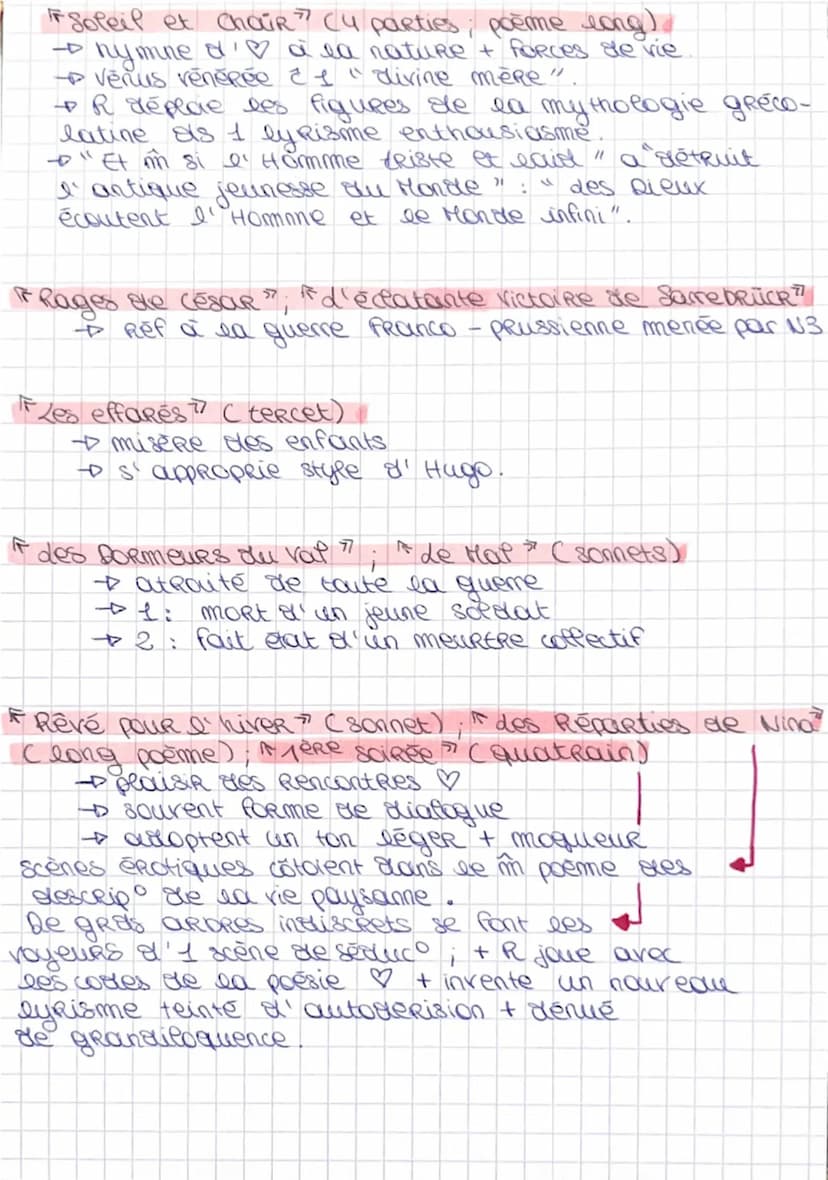 « Soleil et Chair » (4 parties ; poème long)
→ hymne d'♡ à la nature + forces de vie.
→ Vénus vénérée c̄ 1 " divine mère ".
→ R déploie les figures de la mythologie gréco-
latine ds 1 lyrisme enthousiasmé.
→ " Et m̂ si l'Homme triste et laid " a " détruit
l'antique jeunesse du Monde " : " des Dieux
écoutent l'Homme et le Monde infini ".
« Rages de César » ; « L'éclatante victoire de Sarrebrück »
→ Réf à la guerre franco - prussienne menée par N3
« Les effarés » (tercet)
→ misère des enfants
→ s'approprie style d'Hugo.
« Les Dormeurs du Val » ; « Le Mal » (sonnets)
→ atraité de toute la guerre
→ 1 : mort d'un jeune soldat
→ 2 : fait état d'un meurtre collectif
« Rêvé pour l'hiver » (sonnet) ; « Les Réparties de Nina »
(long poème) ; « 1ère soirée » (quatrain)
→ plaisir des rencontres ♡
→ souvent forme de dialogue
→ adoptent un ton léger + moqueur
scènes érotiques côtoient dans le m̂ poème des
descrip° de la vie paysanne.
De grds arbres indiscrets se font les
voyeurs d'1 scène de séduc° ; + R joue avec
les codes de la poésie ♡ + invente un nouveau
lyrisme teinté d'autodérision + dénué
de grandiloquence.